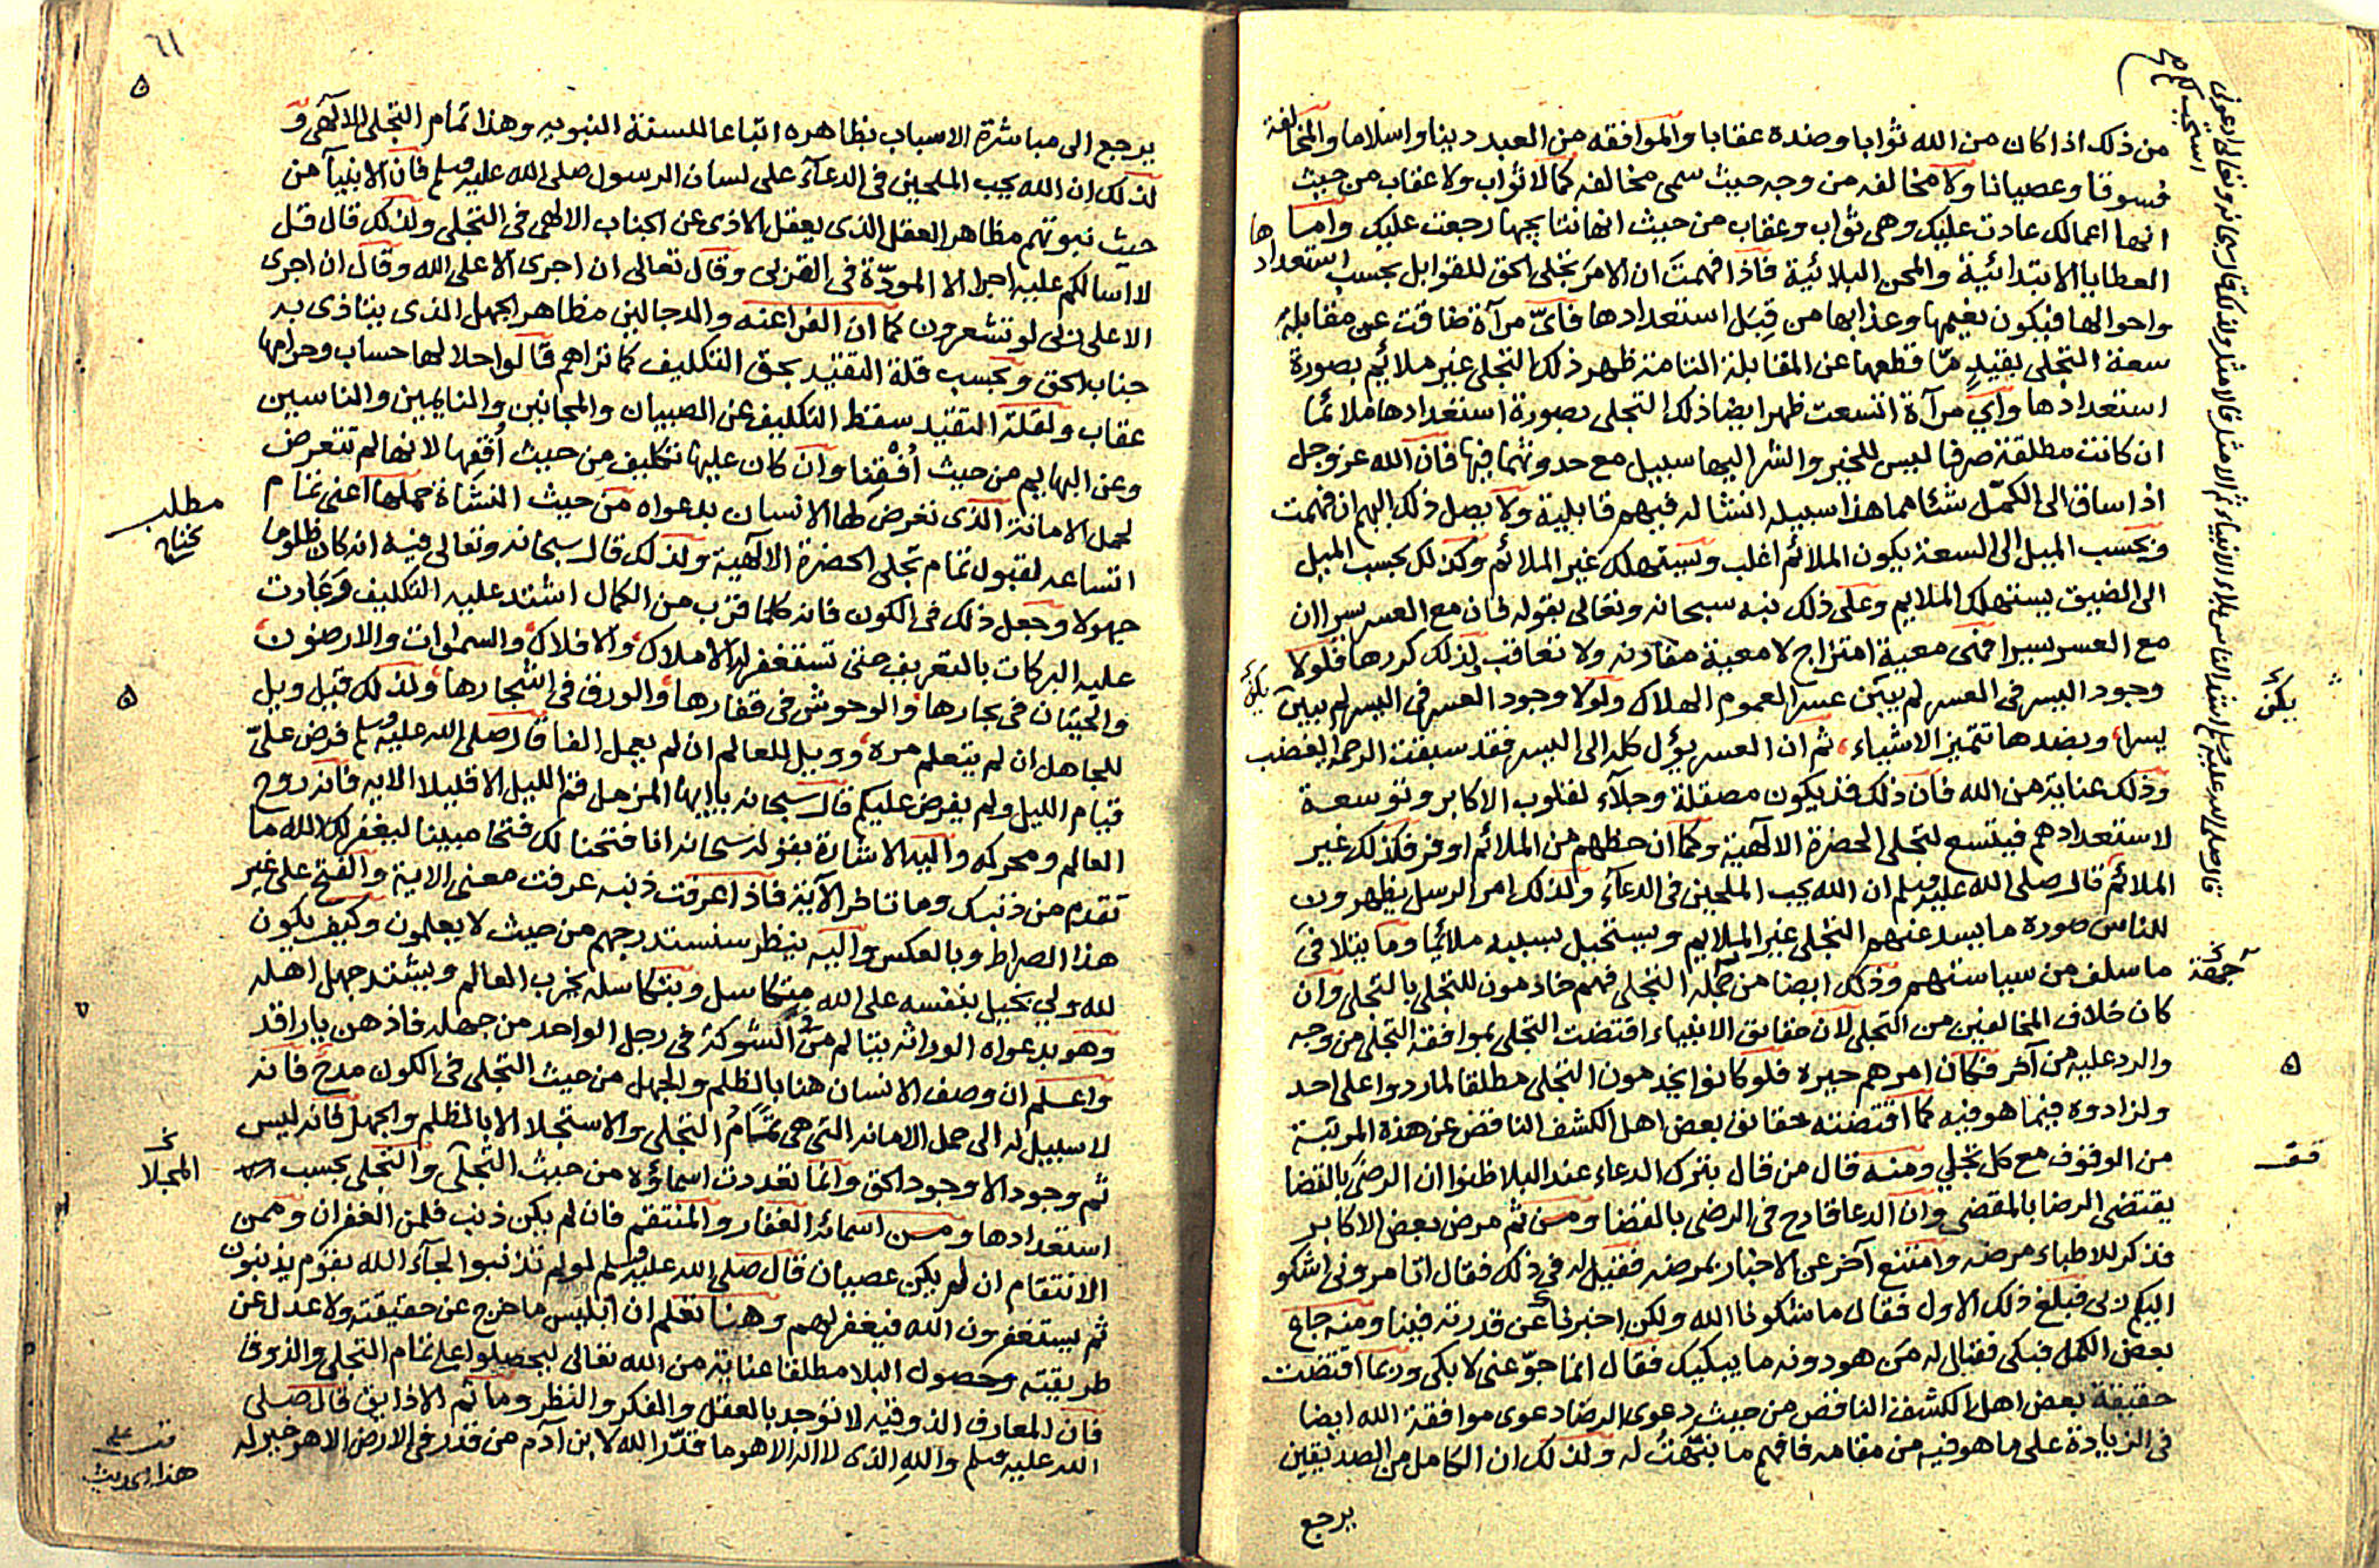 من ذلك اذا كان من الله ثوابا وضده عقابا والموافقه من العبد دينا واسلاما والمخالفة
فسوقا وعصيانا ولا مخالفه من وجه حيث سمى مخالفه كمالا ثواب ولا عقاب من حيث
انها اعمالك عادت عليك وهى ثواب وعقاب من حيث انها نتايجها رجعت عليك واما
العطايا الابتدائية والمحن البلائية فاذا فهمت ان الامر تجلى الحق للقوابل بحسب استعدادها
واحوالها فيكون نعيمها وعذابها من قبل استعدادها فاىّ مرآة ضاقت عن مقابلة
سعة التجلى بقيدٍ مّا قطعها عن المقابلة التامة ظهر ذلك التجلى غير ملائم بصورة
استعدادها واىّ مرآة اتسعت ظهر ايضا ذلك التجلى بصورة استعدادها ملائما
ان كانت مطلقة صرفا ليس للخير والشر اليها سبيل مع حدوثهما فيها فان الله عز وجل
اذا ساق الى الكمّل شئا مما هذا سبيله انشا له فيهم قابلية ولا يصل ذلك اليهم ان فهمت
وبحسب الميل الى السعة يكون الملائم اغلب ويستهلك غير الملائم وكذلك بحسب الميل
الى الضيق يستهلك الملايم وعلى ذلك نبه سبحانه وتعالى بقوله فان مع العسر يسرا ان
مع العسر يسرا فهى معية امتزاج لا معية مقارنه ولا تعاقب لذلك كررها فلولا
وجود اليسر فى العسر لم يبين عسرا لعموم الهلاك ولولا وجود العسر فى اليسر لم يبين
يسرا وبضدها تتميز الاشياء ثم ان العسر يؤل كله الى اليسر فقد سبقت الرحمة الغضب
وذلك عناية من الله فان ذلك قد يكون مصقلة وجلآء لقلوب الاكابر وتوسعة
لاستعدادهم فيتسع لتجلى الحضرة الالهية وكما ان حظهم من الملائم اوفر فكذلك غير
الملائم قال صلى الله عليه وسلم ان الله يحب الملحين فى الدعآء ولذلك امر الرسل يظهرون
للناس صورة ما يسد عنهم التجلى غير الملايم ويستحيل بسببه ملائما وما يتلافى
ما سلف من سياستهم وذلك ايضا من جملة التجلى فهم خادمون للتجلى بالتجلى وان
كان خلاف المخالفين من التجلى لان حقايق الانبياء اقتضت التجلى بموافقة التجلى من وجه
والرد عليه من آخر فكان امرهم حيره فلو كانوا يخدمون التجلى مطلقا لما ردوا على احد
ولزادوه فيما هو فيه كما اقتضته حقائق بعض اهل الكشف الناقض عن هذه المرتبة
من الوقوف مع كل تجلي ومنه قال من قال بترك الدعاء عند البلا ظنوا ان الرضى بالقضا
يقتضى الرضا بالمقضى وان الدعا قادح فى الرضى بالقضا ومن ثم مرض بعض الاكابر
فذكر للاطباء مرضه وامتنع آخر عن الاخبار بمرضه فقيل له فى ذلك فقال اتامرونى اشكو
اليكم ربى فبلغ ذلك الاول فقال ما شكونا الله ولكن اخبرنا عن قدرته فينا ومنه جاع
بعض الكمل فبكى فقال له من هو دونه ما يبكيك فقال انما جوّعنى لابكى وربما اقتضت
حقيقة بعض اهل الكشف الناقض من حيث دعوى الرضا دعوى موافقة الله ايضا
فى الزيادة على ما هو فيه من مقامه فافهم ما نبهت له ولذلك ان الكامل من الصديقين
يرجع
يكن
جمعية
٦١
يرجع الى مباشرة الاسباب بظاهره اتباعا للسنة النبويه وهذا تمام التجلى الالهى و
لذلك ان الله يحب الملحين فى الدعآء على لسان الرسول صلى الله عليه وسلم فان الانبيآ من
حيث نبوتهم مظاهر العقل الذى يعقل الاذى عن الجناب الالهى فى التجلى ولذلك قال قل
لا اسالكم عليه اجرا الا المودّة فى القربى وقال تعالى ان اجرى الا على الله وقال ان اجرى
الا على ربى لو تشعرون كما ان الفراعنه والدجالين مظاهر الجهل الذى يتاذى به
جناب الحق وبحسب قلة التقيد بحق التكليف كما تراهم قالوا حلالها حساب وحرامها
عقاب ولقلة التقيد سقط التكليف عن الصبيان والمجانين والنايمين والناسين
وعن البهايم من حيث اُفْقِنا وان كان عليها تكليف من حيث اُفقها لانها لم تتعرض
لحمل الامانة الذى تعرض لها الانسان بدعواه من حيث النشاة حملها اعنى تمام
اتساعه لقبول تمام تجلى الحضرة الالهية ولذلك قال سبحانه وتعالى فيه انه كان ظلوما
جهولا وجعل ذلك فى الكون فانه كلما قرب من الكمال اشتد عليه التكليف وعادت
عليه البركات بالتعريف حتى تستغفر له الاملاك والافلاك والسموات والارضون
والحيتان فى بحارها والوحوش فى قفارها والورق فى اشجارها ولذلك قيل ويل
للجاهل ان لم يتعلم مرة وويل للعالم ان لم يعمل الفا قال صلى الله عليه وسلم فرض علىّ
قيام الليل ولم يفرض عليكم قال سبحانه يا ايها المزمل قم الليل الا قليلا الايه فانه روح
العالم ومحركه واليه الاشارة بقوله سبحانه انا فتحنا لك فتحا مبينا ليغفر لك الله ما
تقدم من ذنبك وما تاخر الآية فاذا عرفت ذنبه عرفت معنى الاية والفتح على غير
هذا الصراط وبالعكس واليه ينظر سنستدرجهم من حيث لا يعلمون وكيف يكون
لله ولي بخيل بنفسه على الله متكاسل وبتكاسله يخرب العالم ويشتد جهل اهله
وهو بدعواه الوراثه يتالم من الشوكة فى رجل الواحد من جهله فاذهن يا راقد
واعلم ان وصف الانسان هنا بالظلم والجهل من حيث التجلى فى الكون مدح فانه
لا سبيل له الى حمل الامانه التى هى تمام التجلى والاستجلا الا بالظلم والجهل فانه ليس
ثم وجود الا وجود الحق وانما تعددت اسماؤه من حيث التجلى والتجلى بحسب
استعدادها ومن اسمائه الغفار والمنتقم فان لم يكن ذنب فلمن الغفران وممن
الانتقام ان لم يكن عصيان قال صلى الله عليه وسلم لو لم تذنبوا لجآء الله بقوم يذنبون
ثم يستغفرون الله فيغفر لهم وهنا تعلم ان ابليس ما خرج عن حقيقته ولا عدل عن
طريقته وحصول البلا مطلقا عناية من الله تعالى ليحصلوا على تمام التجلى والذوق
فان المعارف الذوقيه لا توجد بالعقل والفكر والنظر وما ثم الا ذايق قال صلى
الله عليه وسلم والله الذى لا اله الا هو ما قدّر الله لابن آدم من قدر فى الارض الا هو خير له
مطلب
المجلا
قف على
هذا الحديث